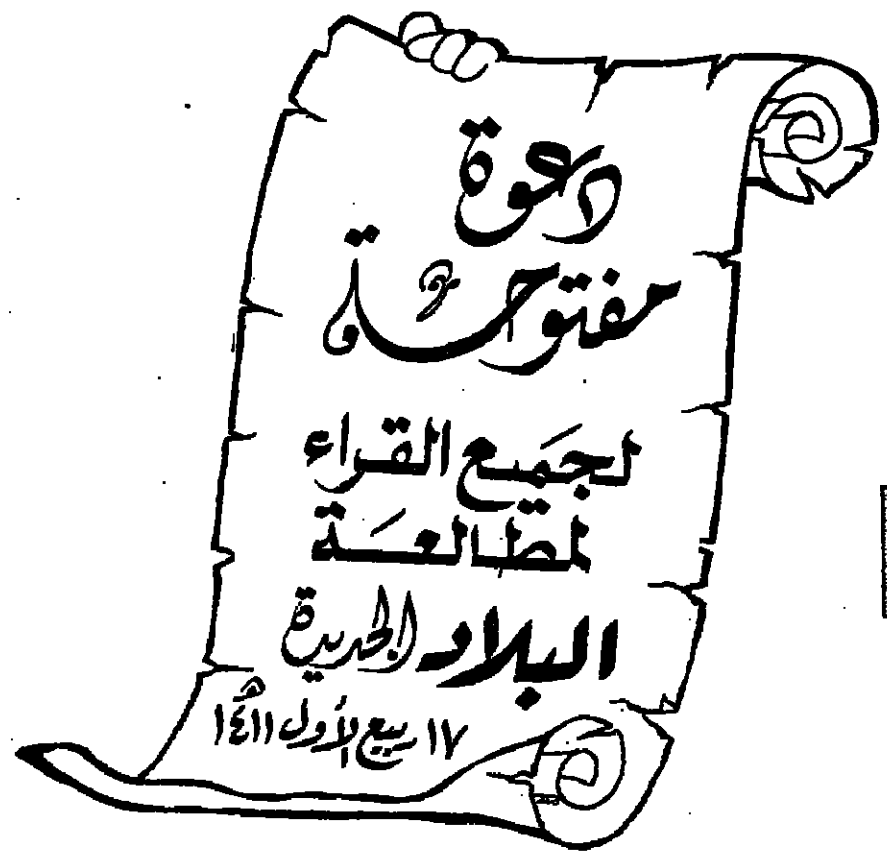 دعوة
مفتوحة
لجَميع القراء
لمطالعَة
البلاد الجديدة
١٧ ربيع الأول ١٤١١هـ